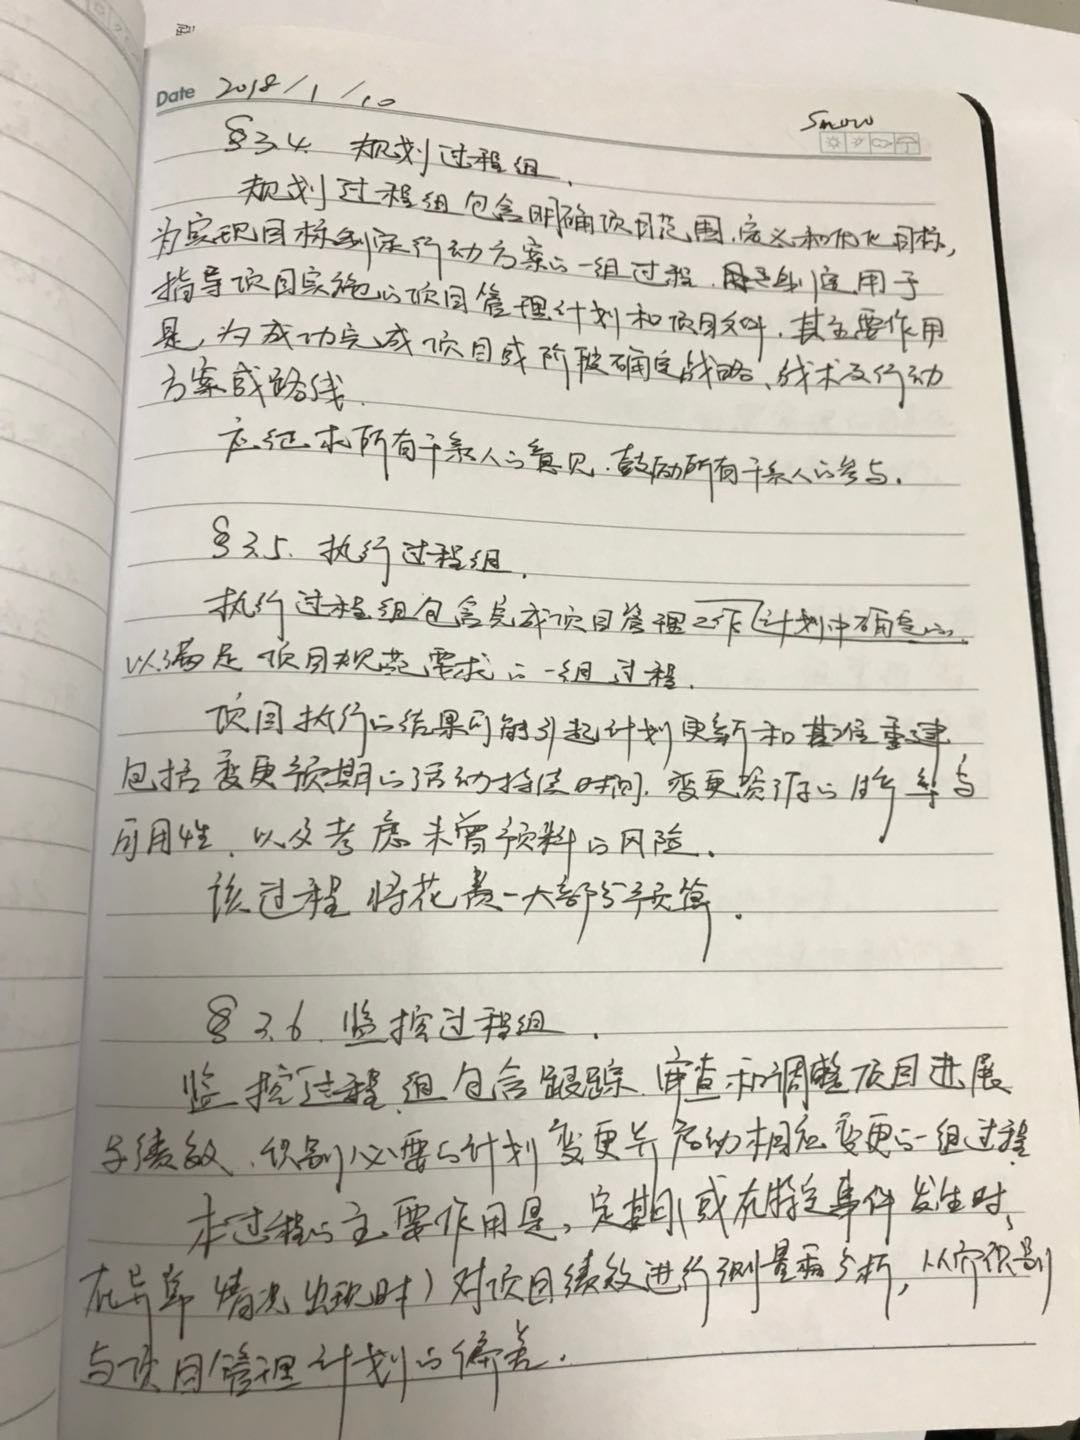 Date 2018/1/10
Snow
§3.4. 规划过程组.
规划过程组包含明确项目范围.定义和优化目标,
为实现目标制定行动方案的一组过程.制定用于
指导项目实施的项目管理计划和项目文件.其主要作用
是,为成功完成项目或阶段确定战略、战术及行动
方案或路线.
应征求所有干系人的意见.鼓励所有干系人的参与.
§3.5. 执行过程组.
执行过程组包含完成项目管理计划中确定的工作
以满足项目规范要求的一组过程.
项目执行的结果可能引起计划更新和基准重建
包括变更预期的活动持续时间.变更资源的 率与
可用性.以及考虑未曾预料的风险.
该过程将花费一大部分预算.
§3.6. 监控过程组.
监控过程组包含跟踪.审查和调整项目进展
与绩效.识别必要的计划变更并启动相应变更的一组过程.
本过程的主要作用是,定期(或在特定事件发生时,
在异常情况出现时)对项目绩效进行测量和分析,从而识别
与项目管理计划的偏差.